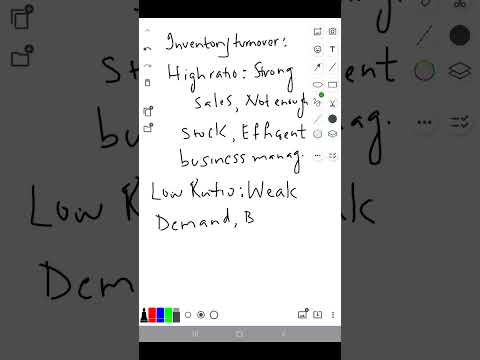 Inventory turnover:
High ratio: Strong
sales, Not enough
stock, Efficent
business manag.
Low Ratio: Weak
Demand, B